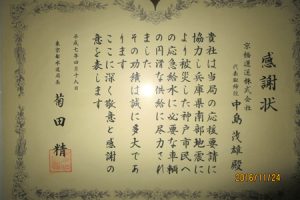 感謝状
京橋運送株式会社
代表取締役
中島茂雄殿
貴社は当局の応援要請に
協力し兵庫県南部地震に
より被災した神戸市民へ
の応急給水に必要な車輌
の円滑な供給に尽力され
ました
その功績は誠に多大であ
ります
ここに深く敬意と感謝の
意を表します
平成七年四月十八日
東京都水道局長
菊田精
2016/11/24